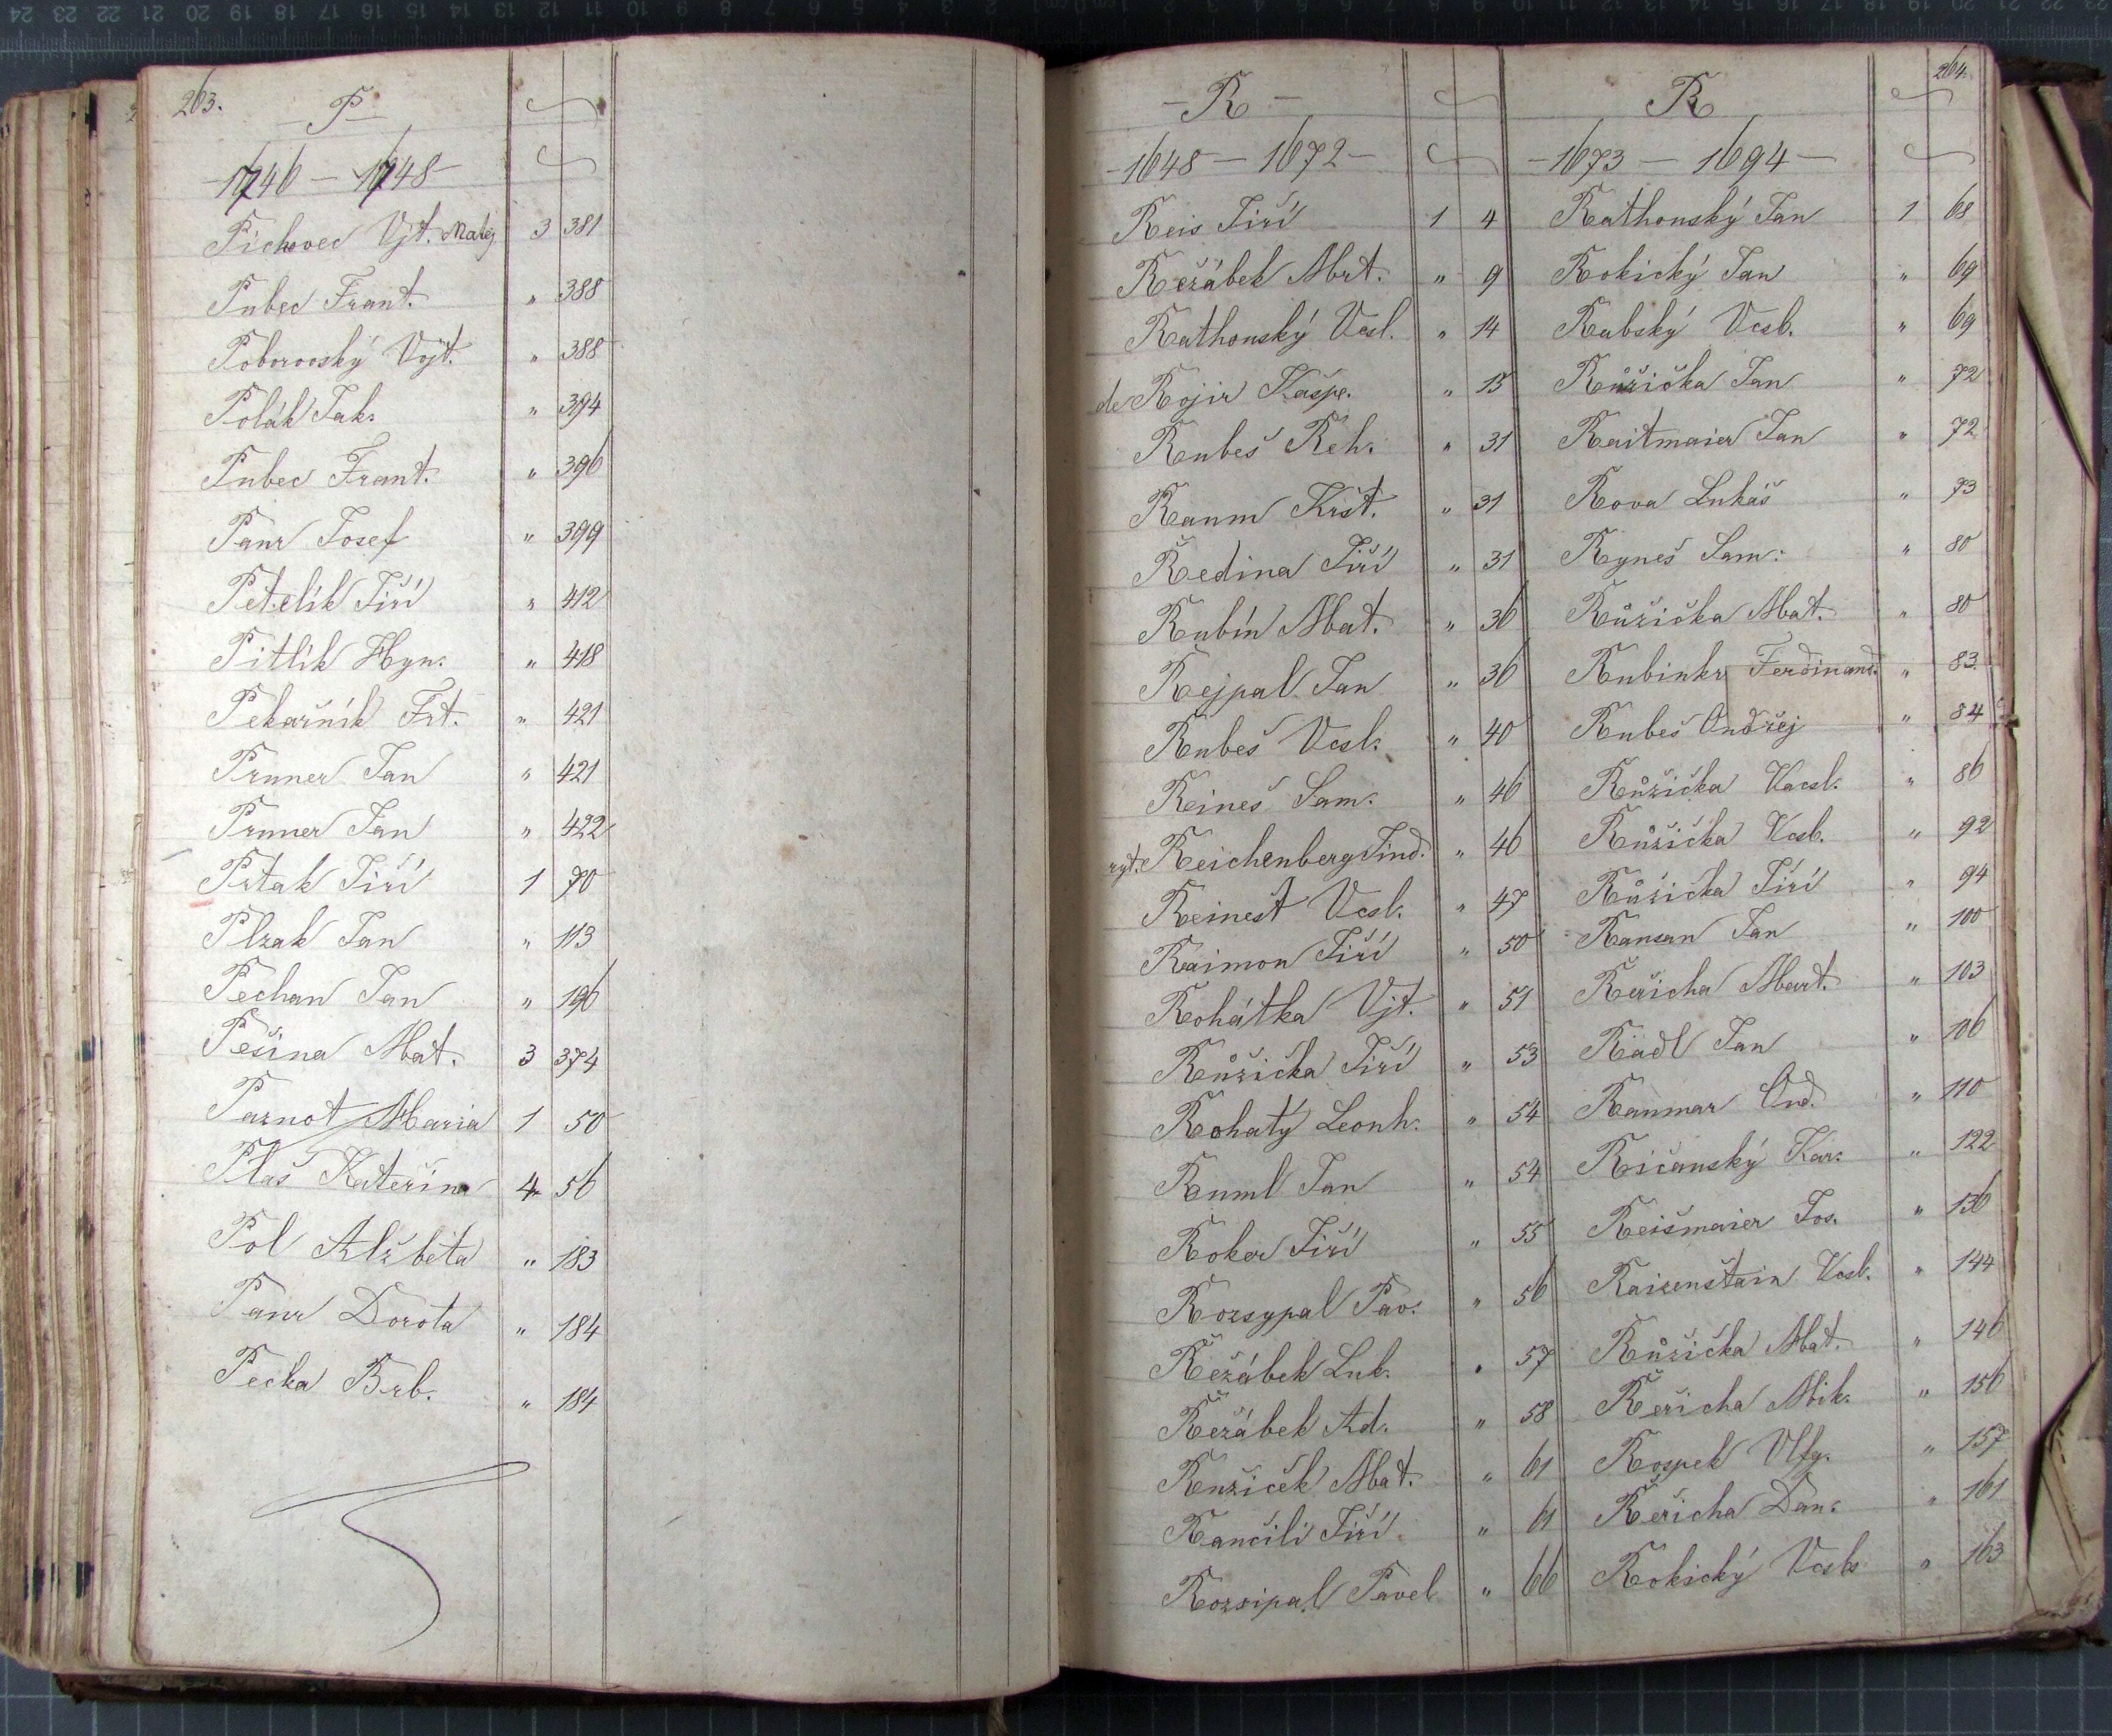 263.
P
1746 — 1748
Pichovec Vjt. Matěj 3 381
Pubec Frant. " 388
Poborovský Vojt. " 388
Polák Jak. " 394
Pubec Frant. " 396
Panr Josef " 399
Petelík Jiří " 412
Pitlík Hyn. " 418
Pekařník Frt. " 421
Pruner Jan " 421
Pruner Jan " 422
Prtak Jiří 1 70
Plzak Jan " 113
Pechan Jan " 196
Pešina Mat. 3 374
Parnot Maria 1 50
Plaš Kateřina 4 56
Pol Alžběta " 183
Panr Dorota " 184
Pecka Brb. " 184
— R —
1648 — 1672
Reis Jiří 1 4
Řeřábek Mrt. " 9
Rathouský Vcsl. " 14
de Rojir Kašp. " 15
Rubeš Řeh. " 31
Raum Kršt. " 31
Ředina Jiří " 31
Rubín Mat. " 36
Rejpal Jan " 36
Rubeš Vcsl. " 40
Reineš Sam. " 46
ryt. Reichenberg Jind. " 46
Reinešt Vcsl. " 47
Raimon Jiří " 50
Rohátka Vjt. " 51
Růžička Jiří " 53
Rohatý Leonh. " 54
Ruml Jan " 54
Roker Jiří " 55
Rozsypal Pav. " 56
Řeřábek Luk. " 57
Řeřábek Ad. " 58
Ružiček Mat. " 61
Rančili Jiří " 61
Rozsipal Pavel " 66
264.
R
1673 — 1694
Rathouský Jan 1 68
Rokický Jan " 69
Rabský Vcsl. " 69
Růžička Jan " 72
Raitmaier Jan " 72
Rova Lukáš " 73
Ryneš Sam. " 80
Růžička Mat. " 80
Rubinkr Ferdinand. " 83
Rubeš Ondřej " 84
Růžička Vacsl. " 86
Růžička Vcsl. " 92
Růžička Jiří " 94
Ransan Jan " 100
Řeřicha Mart. " 103
Riadl Jan " 106
Ranmar Ond. " 110
Řičanský Kar. " 122
Reišmaier Jos. " 136
Raizenštain Vcsl. " 144
Růžička Mat. " 146
Řeřicha Mik. " 156
Rospek Vlfg. " 157
Řeřicha Dan. " 161
Rokický Vcsl. " 163